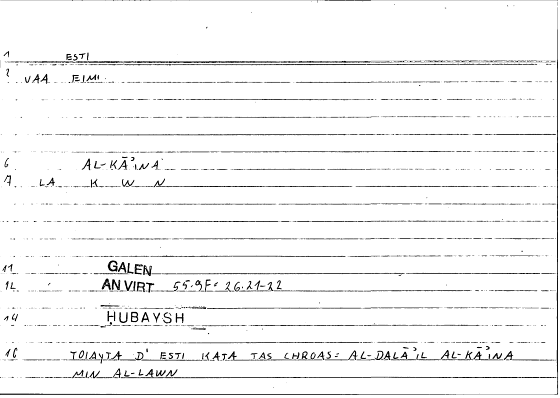 1 ESTI
2 VAA EIMI
6 AL-KĀʾINA
7 LA K W N
11 GALEN
12 AN VIRT 55.9F = 26.21-22
14 ḤUBAYSH
16 TOIAYTA D' ESTI KATA TAS CHROAS = AL-DALĀʾIL AL-KĀʾINA
MIN AL-LAWN